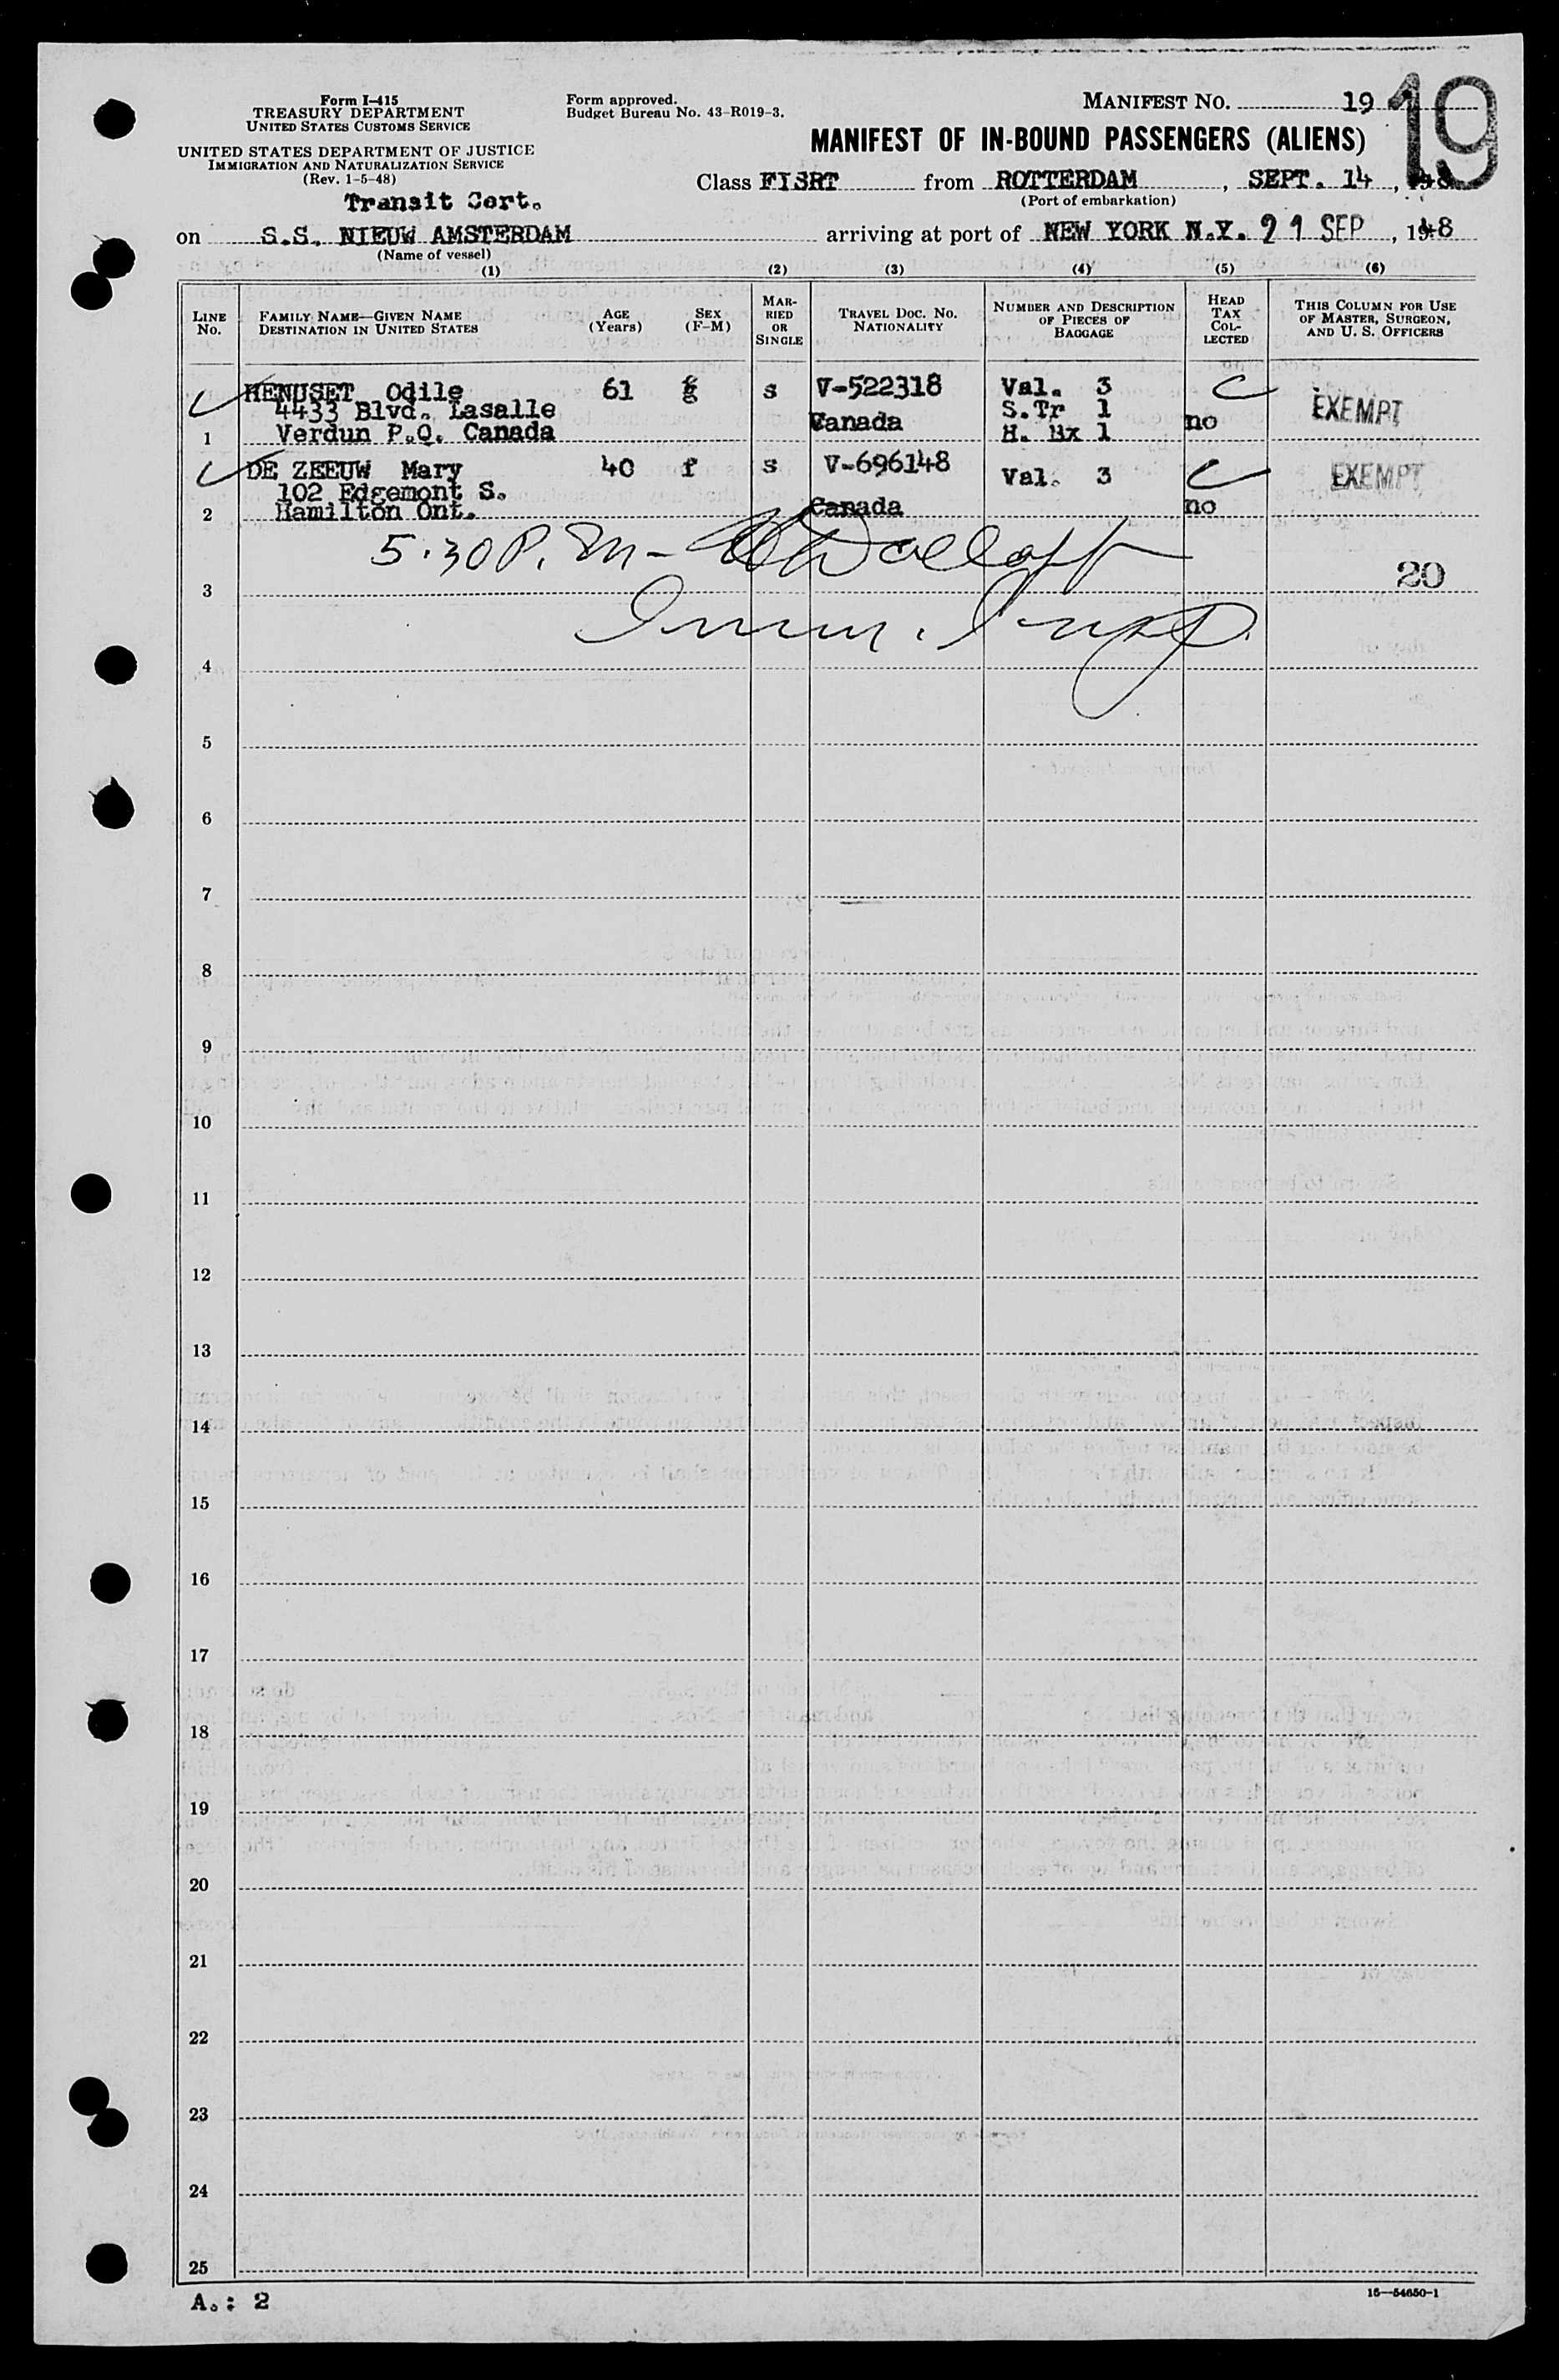 Form I-415
TREASURY DEPARTMENT
UNITED STATES CUSTOMS SERVICE
UNITED STATES DEPARTMENT OF JUSTICE
IMMIGRATION AND NATURALIZATION SERVICE
(Rev. 1-5-48)
Form approved.
Budget Bureau No. 43-R019-3.
MANIFEST NO. 19
19
MANIFEST OF IN-BOUND PASSENGERS (ALIENS)
Class FISRT from ROTTERDAM, SEPT. 14,
(Port of embarkation)
Transit Cert.
on S.S. NIEUW AMSTERDAM arriving at port of NEW YORK N.Y. 21 SEP, 1948
(Name of vessel)
(1) (2) (3) (4) (5) (6)
LINE No. FAMILY NAME—GIVEN NAME DESTINATION IN UNITED STATES AGE (Years) SEX (F-M) MARRIED OR SINGLE TRAVEL DOC. NO. NATIONALITY NUMBER AND DESCRIPTION OF PIECES OF BAGGAGE HEAD TAX COLLECTED THIS COLUMN FOR USE OF MASTER, SURGEON, AND U. S. OFFICERS
HENUSET Odile 61 f s V-522318 Val. 3 EXEMPT
4433 Blvd. Lasalle Canada S.Tr 1 no
1 Verdun P.Q. Canada H. Bx 1
DE ZEEUW Mary 40 f s V-696148 Val. 3 EXEMPT
102 Edgemont S.
2 Hamilton Ont. Canada no
5:30 P.M -
3 20
Immn. Insp.
4
5
6
7
8
9
10
11
12
13
14
15
16
17
18
19
20
21
22
23
24
25
A.: 2
16—54650-1